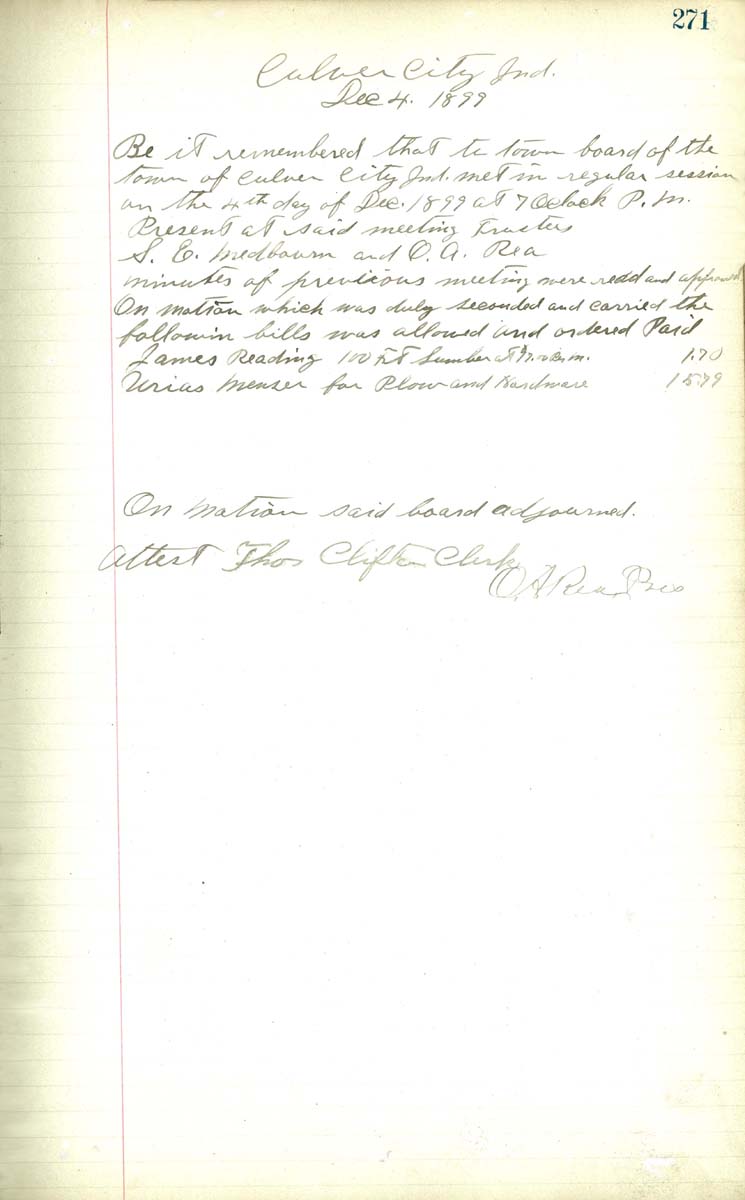 271
Culver City Ind.
Dec 4. 1899
Be it remembered that te town board of the
town of Culver City Ind. met in regular session
on the 4th day of Dec. 1899 at 7 Oclock P.M.
Present at said meeting Trustees
S. E. Medbourn and O. A. Rea
minutes of previous meeting were redd and approved
On motion which was duly seconded and carried the
followin bills was allowed and ordered Paid
James Reading 100 Ft Lumber at 1.70
Urias Menser for Plow and Hardware 15.79
On motion said board adjourned.
Attest Thos Clifton Clerk
O A Rea Pres